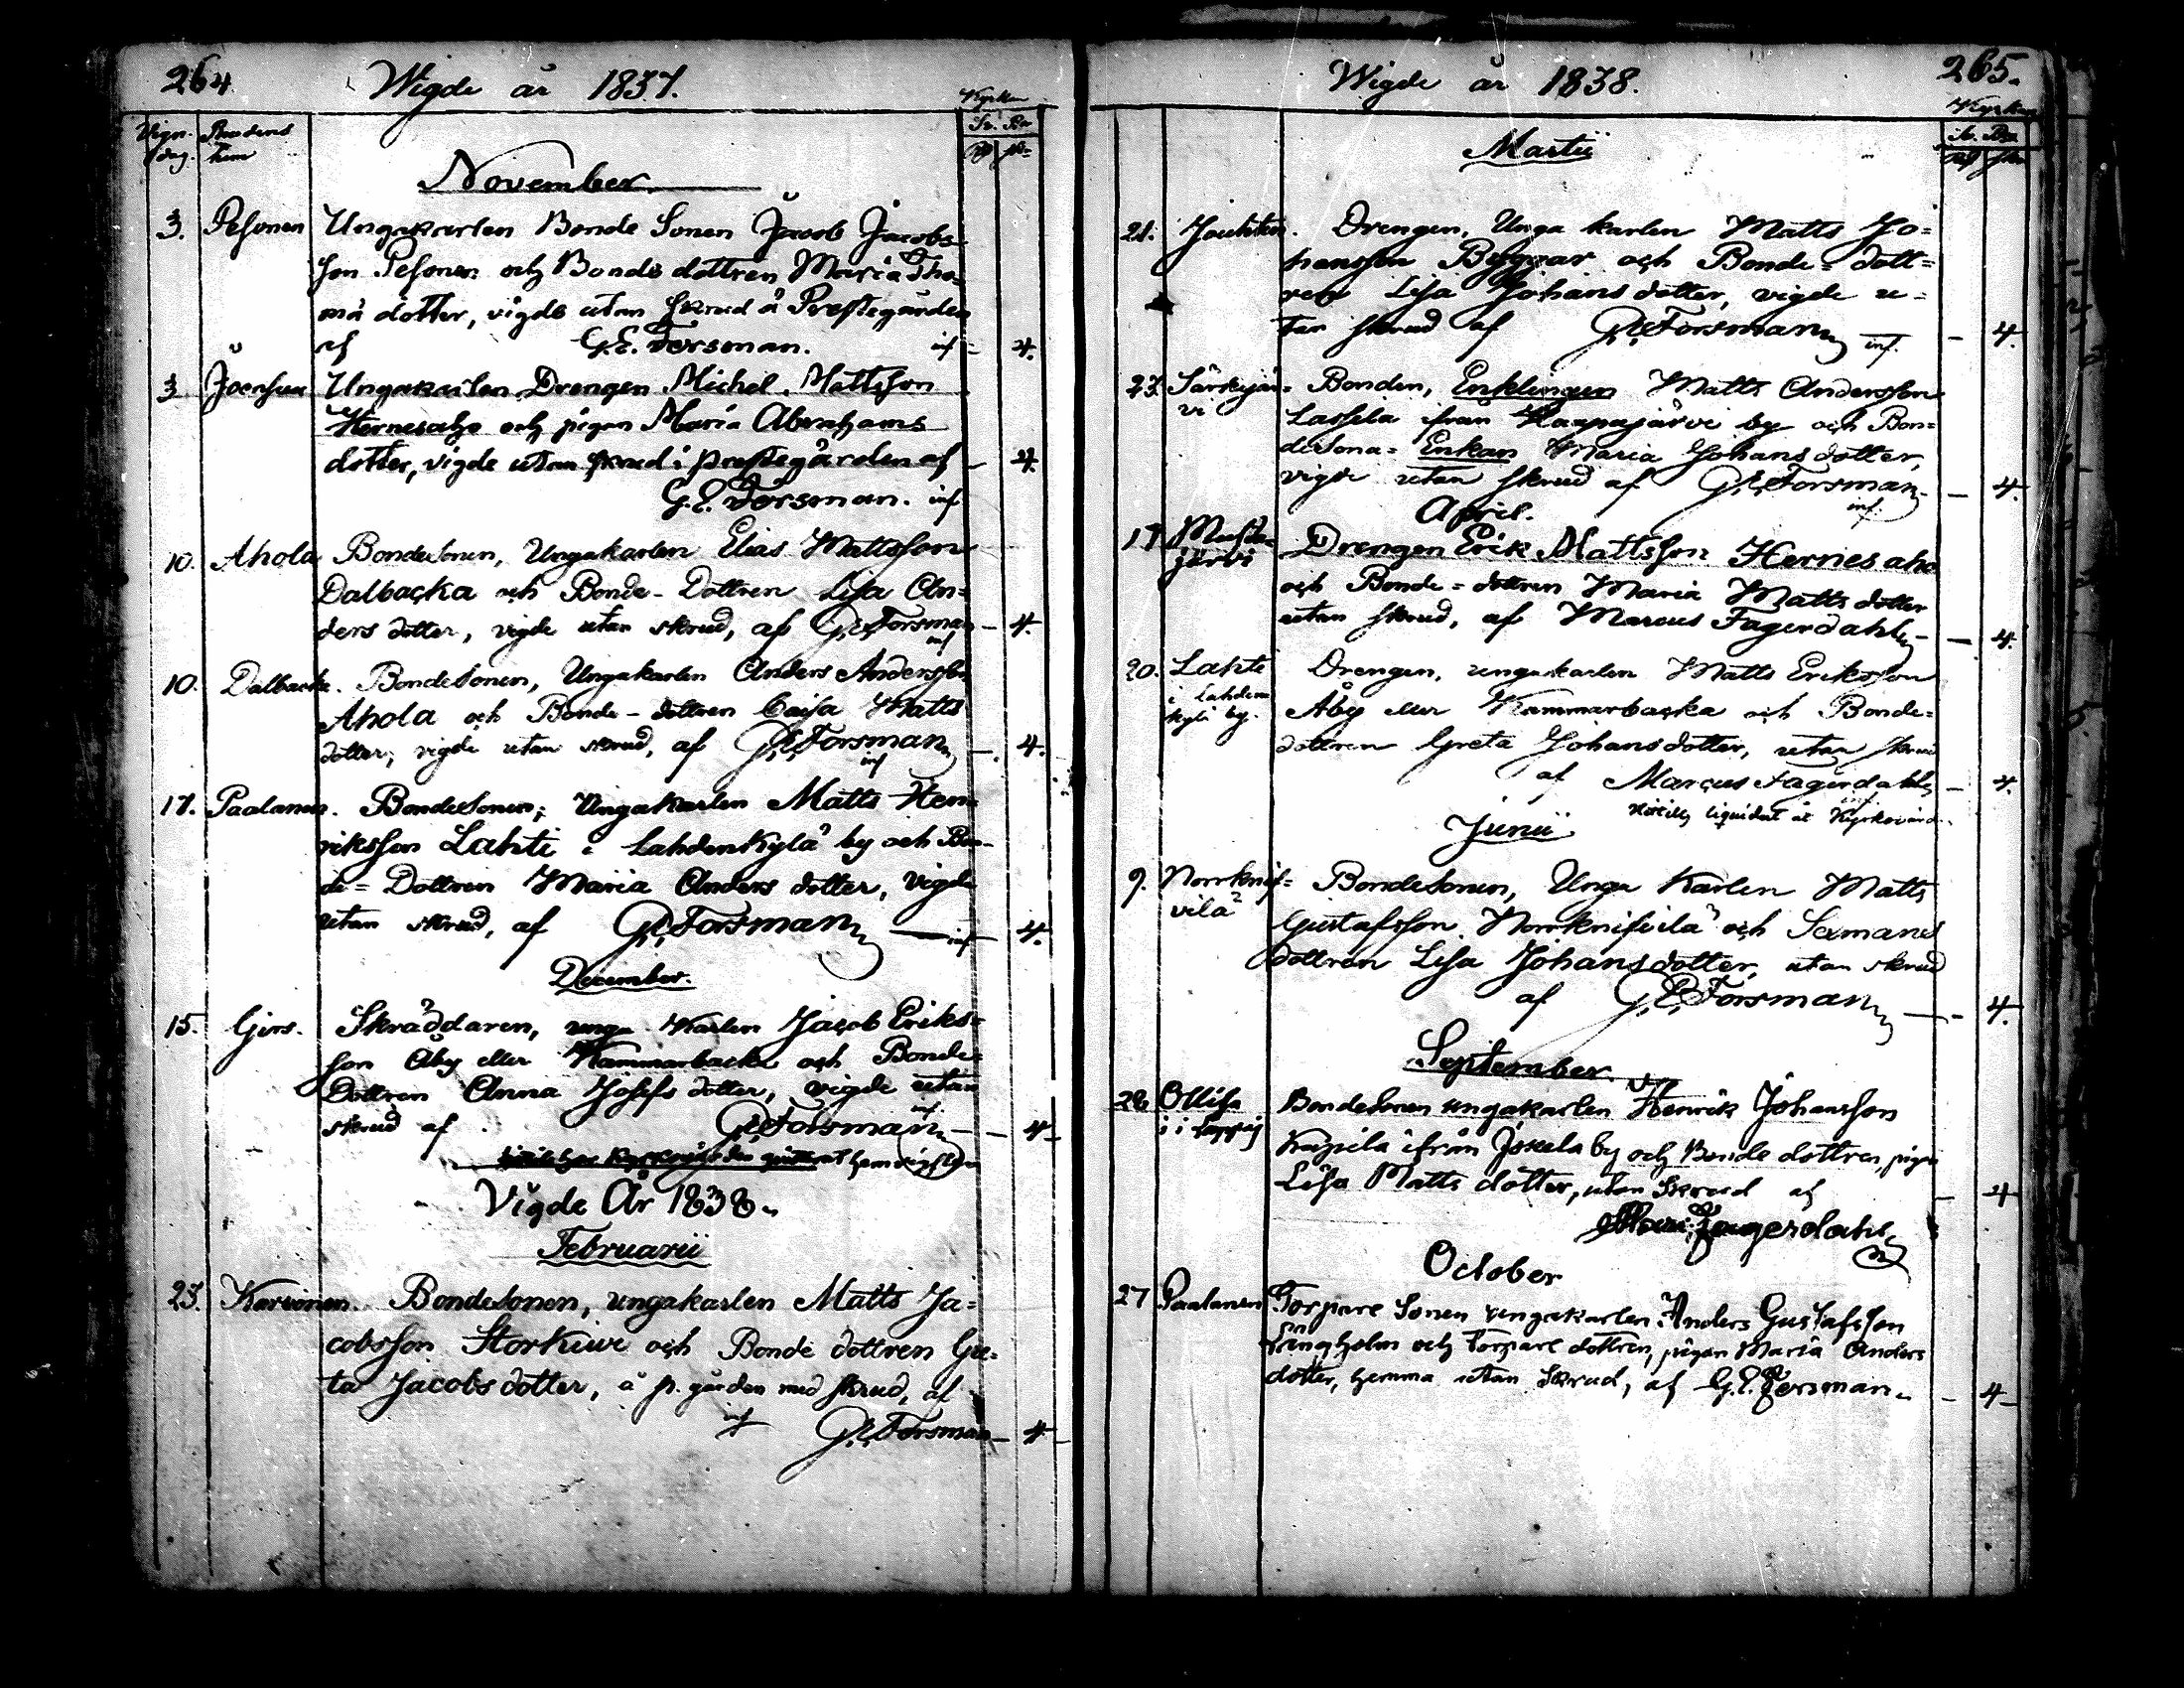 264 Wigde år 1837.
Kyrkan
Vign. dag. Brudens hem
November
3. Pesonen Ungakarlen Bonde Sonen Jacob Jacobs
son Pesonen och Bonde dottren Maria Tho-
mä dotter, vigde utan skrud å Prestegården
af G.E. Forsman. inf - 4.
3 Joensuu Ungakarlen Drengen Michel Mattsson
Hernesaho och pigan Maria Abrahams
dotter, vigde utan skrud i prestegården af - 4.
G.E. Forsman. inf
10. Ahola Bondesonen, Ungakarlen Elias Mattsson
Dalbacka och Bonde-Dottren Lisa An=
ders dotter, vigde utan skrud, af G.E. Forsman - 4.
inf
10. Dalbacka. Bondesonen, Ungakarlen Anders Andersson
Ahola och Bonde-dottren Caisa Matts
dotter, vigde utan skrud, af G.E. Forsman - 4.
inf
17. Paalanen. Bondesonen, Ungakarlen Matts Hen=
riksson Lahti i Lahdenkylä by och Bon-
de= Dottren Maria Anders dotter, vigde
utan skrud, af G.E. Forsman inf 4.
December.
15. Girs. Skräddaren, unga Karlen Jacob Eriks=
son Åby eller Kammarbacka och Bonde=
Dottren Anna Josefs dotter, vigde utan
inf.
skrud af G.E. Forsman - 4
Vigde År 1838.
Februarii
23. Karvonen. Bondesonen, ungakarlen Matts Ja=
cobsson Storkiwi och Bonde dottren Gre=
ta Jacobs dotter, å p. gården med skrud, af
inf G.E. Forsman - 4
Wigde år 1838. 265.
Kyrkan
Martii
21. Jouhten. Drengen, Unga karlen Matts Jo=
hansson Byggar och Bonde= dott=
ren Lisa Johans dotter, vigde u=
tan skrud af G.E. Forsman inf. - 4.
23. Särkijär= Bonden, Enklingen Matts Andersson
vi Lassila från Haapajärvi by och Bon=
desona= Enkan Maria Johans dotter,
vigde utan skrud af G.E. Forsman - 4.
inf.
April.
17 Musta- Drengen Erik Mattsson Hernesaho
järvi och Bonde= dottren Maria Matts dotter
utan skrud, af Marcus Fagerdahl - 4.
20. Lahti Drengen, ungakarlen Matts Eriksson
i Lahden Åby eller Kammarbacka och Bonde=
kylä by. dottren Greta Johans dotter, utan skrud
af Marcus Fagerdahl - 4.
liquidat
Junii
9. Norrknif= Bondesonen, Unga Karlen Matts
vilä Gustafsson Norrknifvilä och Sexmans
dottren Lisa Johans dotter, utan skrud
af G.E. Forsman - 4.
September
28 Ollila Bondesonen ungakarlen Henrik Johansson
Krapila ifrån Jskela by och Bonde dottren, pigan
Lisa Matts dotter, utan Skrud af - 4
Fagerdahl
October
27 Paalanen Torpare Sonen ungakarlen Anders Gustafsson
Långholm och Torpare dottren, pigan Maria Anders
dotter, hemma utan Skrud, af G.E. Forsman - 4